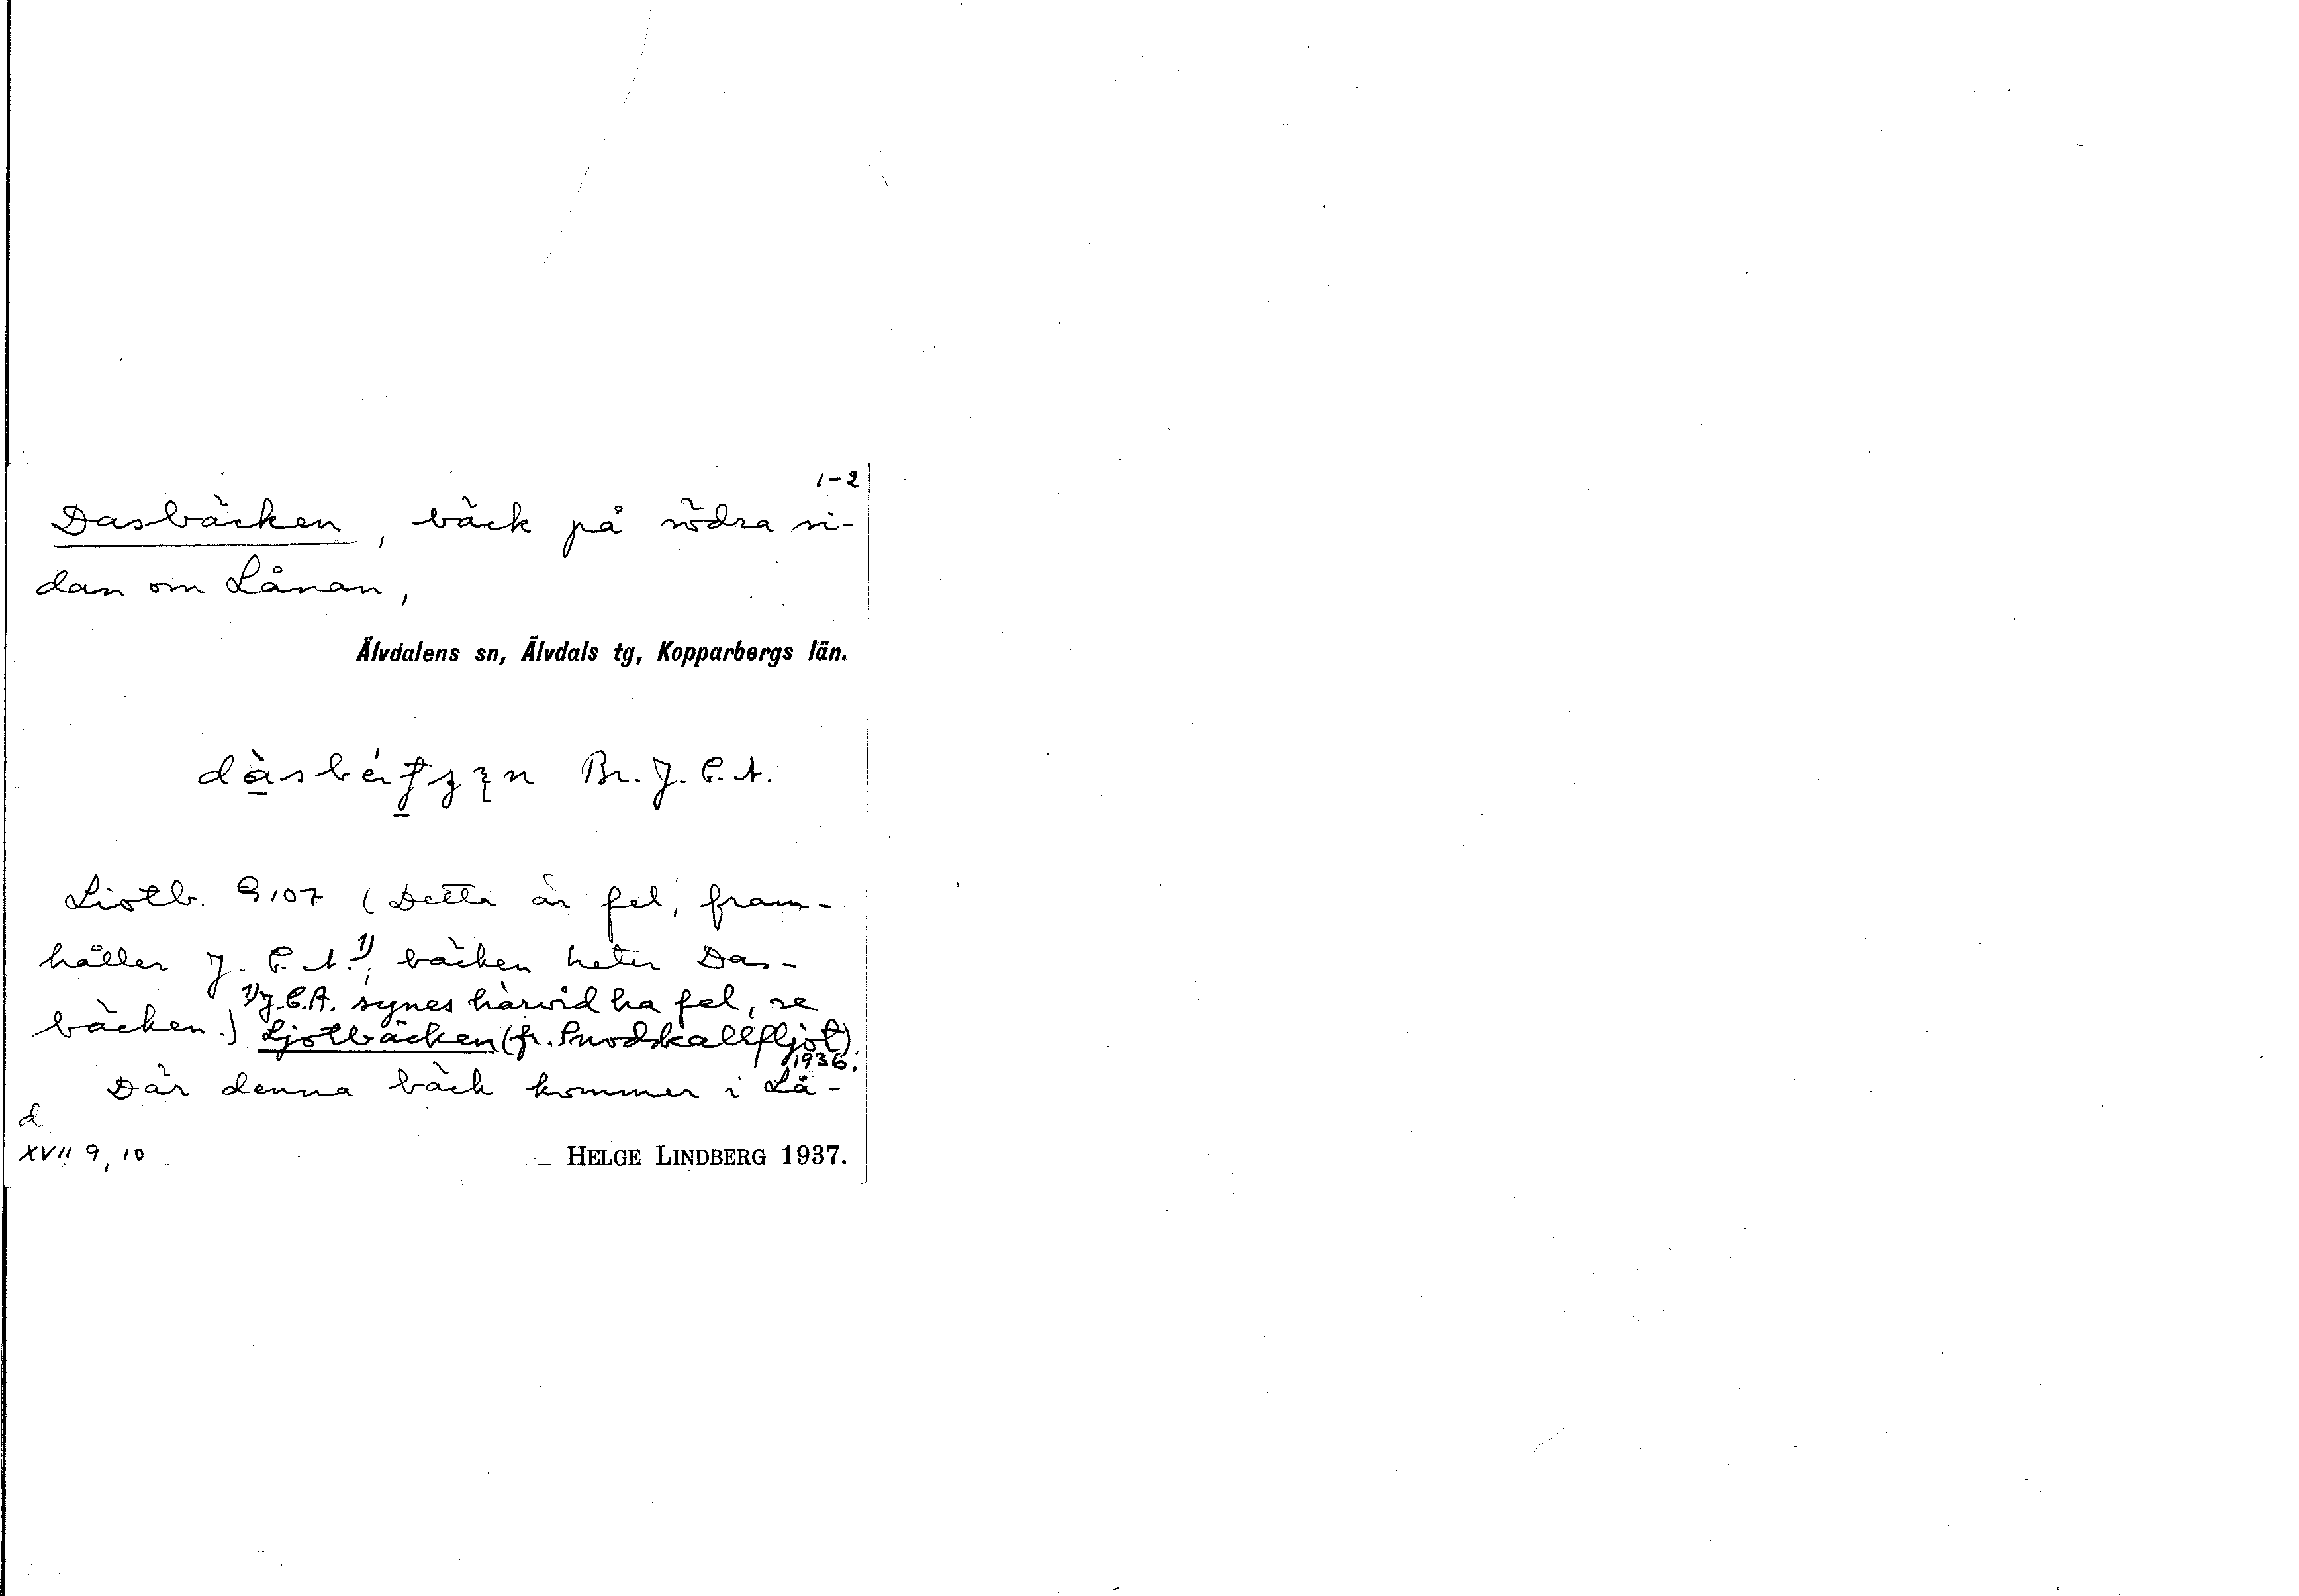 1-2
Dasbäcken, bäck på södra si-
dan om Lånan,
Älvdalens sn, Älvdals tg, Kopparbergs län.
Br. J. E. A.
Liotb. G 107 (Detta är fel, fram-
håller J. E. A.¹⁾, bäcken heter Das-
bäcken.) ¹⁾J.E.A. synes härvid ha fel, se
Ljotbäcken (fr. 1936.
Där denna bäck kommer i Lå-
d
XVII 9, 10
HELGE LINDBERG 1937.